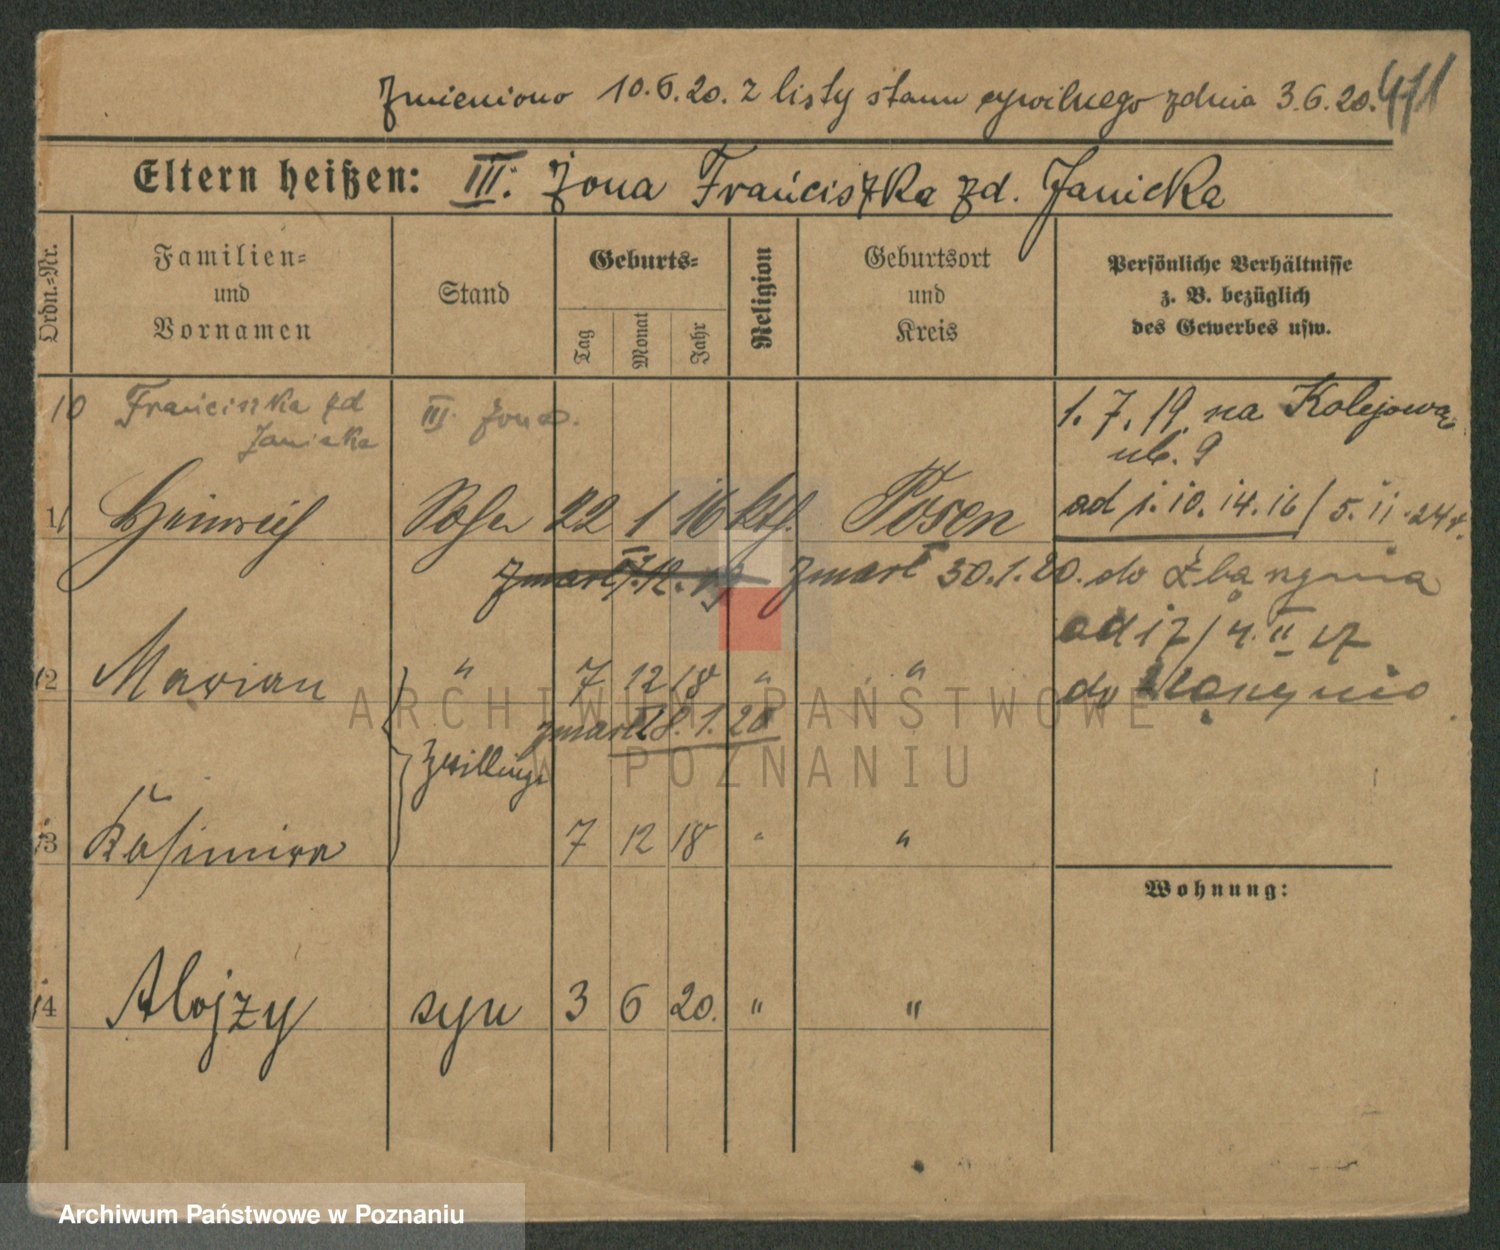 Zmieniono 10.6.20. z listy stanu cywilnego z dnia 3.6.20. 411
Eltern heißen: III. żona Franciszka zd. Janicka
Ordn.-Nr.
Familien- und Vornamen
Stand
Geburts-
Tag
Monat
Jahr
Religion
Geburtsort und Kreis
Persönliche Verhältnisse
z. B. bezüglich
des Gewerbes usw.
10 Franciszka zd III. żona. 1. 7. 19. na Kolejową
Janicka ul. 9
11 Heinrich Sohn 22 1 16 kth. Posen ad 1. 10. 14. 16 / 5. 11. 24
zmarł 30.1.20. do Zbąszynia
12 Marian " 7 12 18 " " ad 17 / 4. II 17
do
zmarł 28.1.20
Zwillinge
13 Kasimira 7 12 18 " "
Wohnung:
14 Alojzy syn 3 6 20. " "
ARCHIWUM PAŃSTWOWE
W POZNANIU
Archiwum Państwowe w Poznaniu